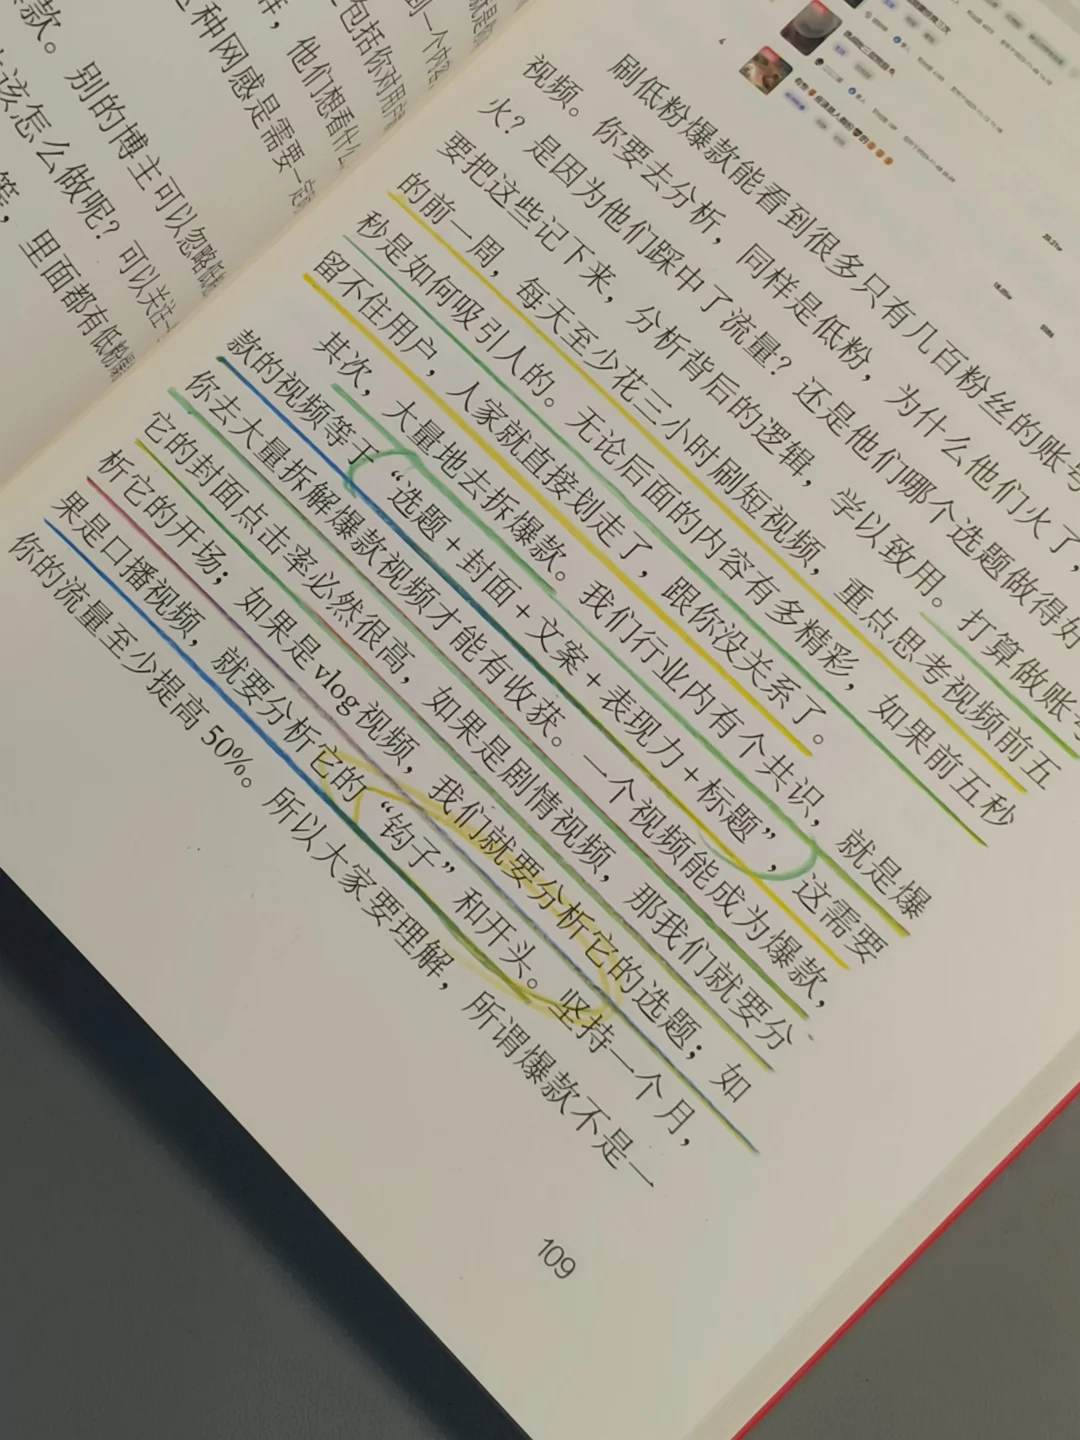 款。别的博主可以忽略低
该怎么做呢？可以关注一
等，里面都有低粉爆
种网感是需要一定
样，他们想看什么
包括你对用户
到一个内容
刷低粉爆款能看到很多只有几百粉丝的账号
视频。你要去分析，同样是低粉，为什么他们火了，
火？是因为他们踩中了流量？还是他们哪个选题做得好
要把这些记下来，分析背后的逻辑，学以致用。打算做账号
的前一周，每天至少花三小时刷短视频，重点思考视频前五
秒是如何吸引人的。无论后面的内容有多精彩，如果前五秒
留不住用户，人家就直接划走了，跟你没关系了。
其次，大量地去拆爆款。我们行业内有个共识，就是爆
款的视频等于“选题+封面+文案+表现力+标题”，这需要
你去大量拆解爆款视频才能有收获。一个视频能成为爆款，
它的封面点击率必然很高，如果是剧情视频，那我们就要分
析它的开场；如果是vlog视频，我们就要分析它的选题；如
果是口播视频，就要分析它的“钩子”和开头。坚持一个月，
你的流量至少提高50%。所以大家要理解，所谓爆款不是一
109